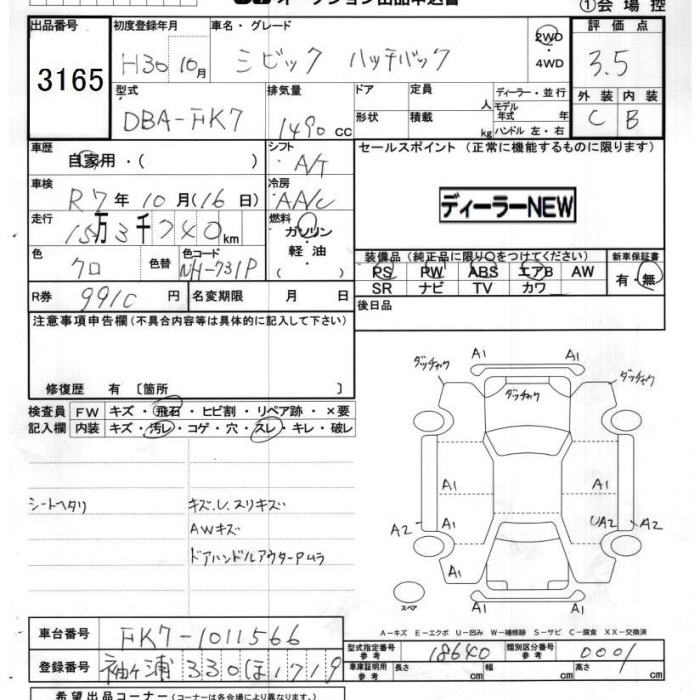 オークション出品申込書 ①会場控
出品番号 初度登録年月 車名・グレード 評価点
3165 H30 10月 シビック ハッチバック 2WD・4WD 3.5
型式 排気量 ドア 定員 人 ディーラー・並行 外装 内装
DBA-FK7 1490 cc 形状 積載 kg モデル年式 年 ハンドル 左・右 C B
車歴 自家用・( ) シフト A/T セールスポイント (正常に機能するものに限ります)
車検 R7年10月(16日) 冷房 AA/C ディーラーNEW
走行 15万3千740km 燃料 ガソリン 軽油 ( )
色 クロ 色替 色コード NH-731P 装備品(純正品に限り○をつけてください) 新車保証書
PS PW ABS エアB AW 有・無
SR ナビ TV カワ
R券 9910円 名変期限 月 日 後日品
注意事項申告欄(不具合内容等は具体的に記入して下さい)
修復歴 有 〔箇所 〕
検査員 FW キズ・飛石・ヒビ割・リペア跡・×要
記入欄 内装 キズ・汚レ・コゲ・穴・スレ・キレ・破レ
シートヘタリ キズU、スリキズ
AWキズ
ドアハンドルアウターPムラ
A1 A1
ダッチャク ダッチャク ダッチャク
A1 A1
A2 A1 UA2 A2
A1 A1
スペア
A-キズ E-エクボ U-凹み W-補修跡 S-サビ C-腐食 XX-交換済
車台番号 FK7-1011566 型式指定番号 参考 18640 類別区分番号 参考 0001
登録番号 袖ヶ浦 330 ほ 1719 車庫証明用 参考 長さ cm 幅 cm 高さ cm
希望出品コーナー(コーナーは各会場により異なります。)